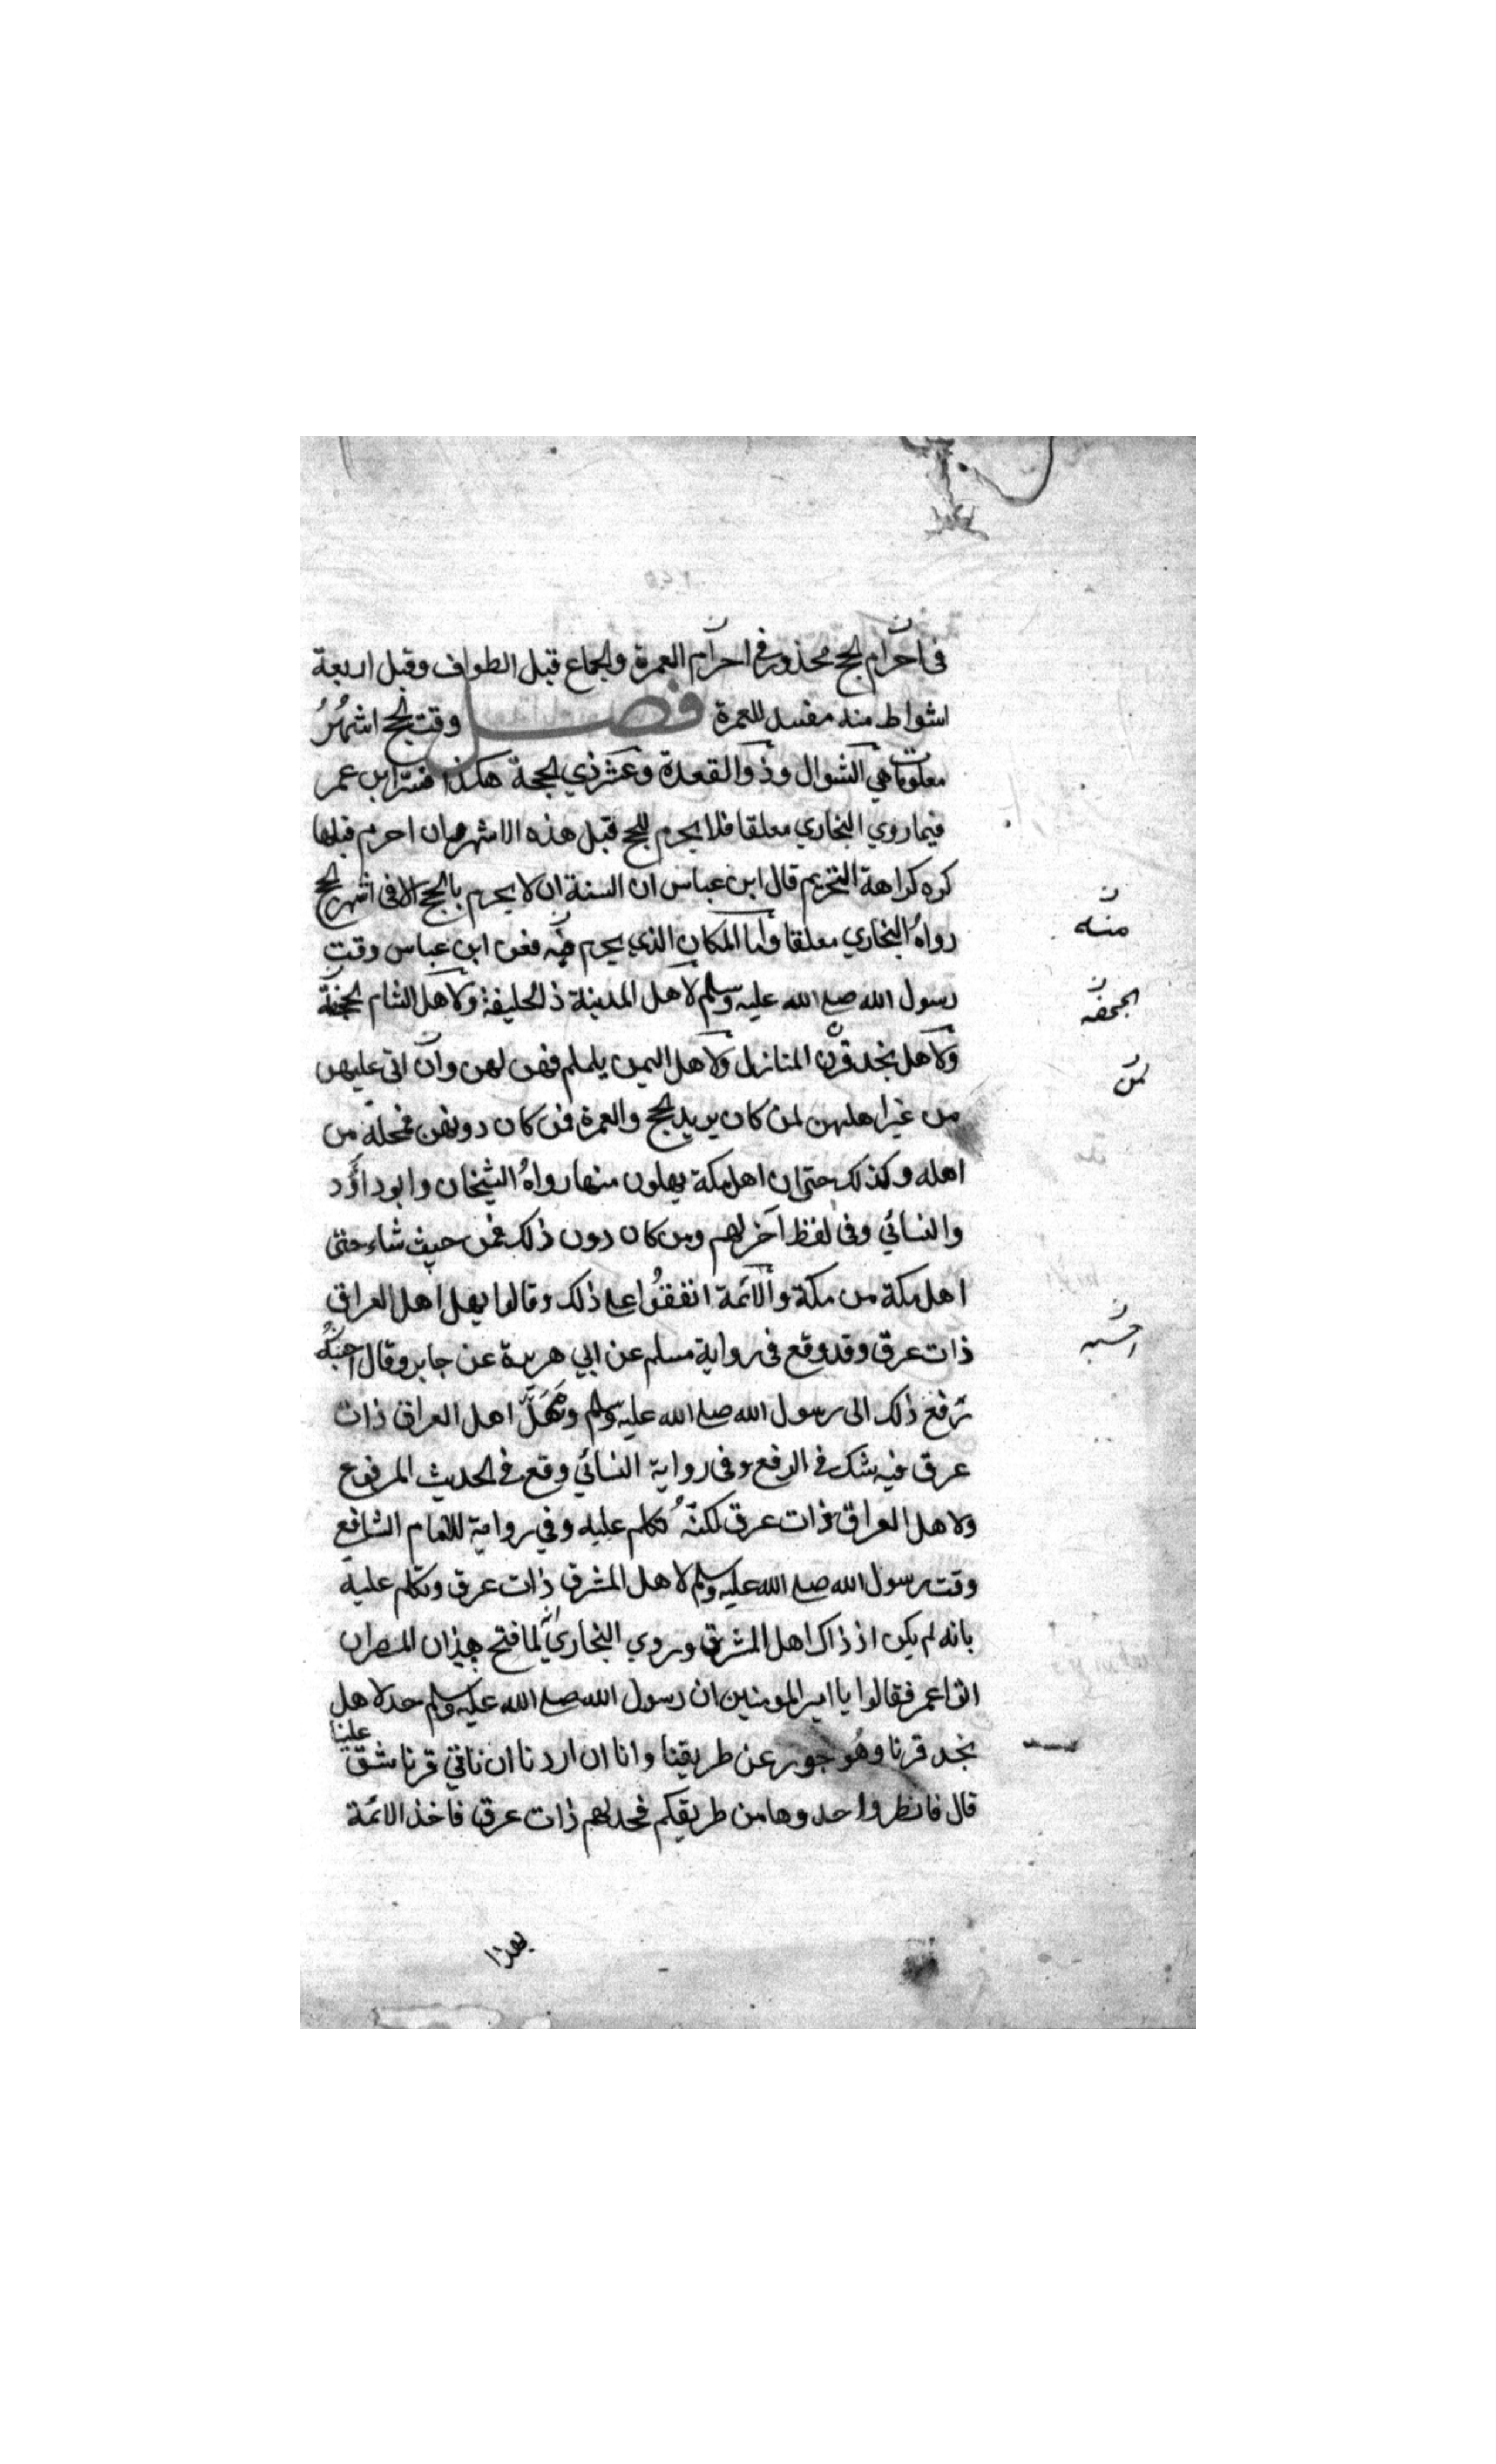 في احرام الحج محذور في احرام العمرة والجماع قبل الطواف وقبل اربعة
اشواط منه مفسد للعمرة فصل وقت الحج اشهُرُ
معلومات هي الشوال وذو القعدة وعشر ذي الحجة هكذا فسّر ابن عمر
فيما روي البخاري معلقا فلا يحرم للحج قبل هذه الاشهر وان احرم قبلها
كره كراهة التحريم قال ابن عباس ان السنة ان لا يحرم بالحج الا في اشهر الحج
رواهُ البخاري معلقا واما المكان الذي يحرم فيه فعن ابن عباس وقت
منه
رسول الله صلے الله عليه وسلم لاهل المدينة ذا الحليفة ولاهل الشام الجحفة
الجحفه
ولاهل نجد قرن المنازل ولاهل اليمن يلملم فهن لهن وان اتى عليهن
لمن
من غير اهلهن لمن كان يريد الحج والعمرة فمن كان دونهن فمحله من
اهله وكذلك حتى ان اهل مكة يهلون منها رواهُ الشيخان وابو داؤد
والنسائي وفي لفظ آخر لهم ومن كان دون ذلك فمن حيث شاء حتى
اهل مكة من مكة والائمة اتفقُوا علے ذلك وقالوا يهل اهل العراق
ذات عرق وقد وقع في رواية مسلم عن ابي هريرة عن جابر وقال احسبُه
احسبه
رفع ذلك الى رسول الله صلے الله عليه وسلم ومُهَلُّ اهل العراق ذات
عرق فيه شك في الرفع وفي رواية النسائي وقع في الحديث المرفوع
ولاهل العراق ذات عرق لكنّهُ تكلم عليه وفي رواية للامام الشافعي
وقت رسول الله صلے الله عليه وسلم لاهل المشرق ذات عرق وتكلم عليه
بانه لم يكن اذ ذاك اهل المشرق وروي البخاري انّه لما فتح هذان المصران
اتوا عمر فقالوا يا امير المومنين ان رسول الله صلے الله عليه وسلم حد لاهل
نجد قرنا وهُو جور عن طريقنا وانا ان اردنا ان ناتي قرنا شقّ علينا
قال فانظروا حدوها من طريقكم فحد لهم ذات عرق فاخذ الائمة
بهذا